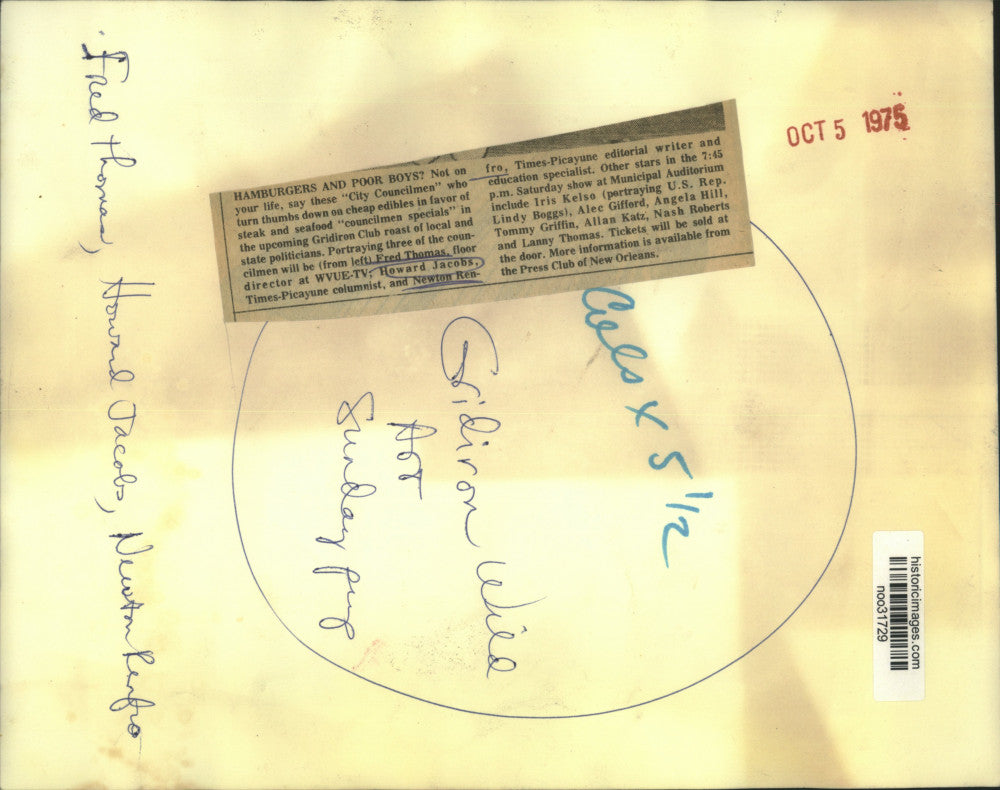 Fred Thomas, Howard Jacobs, Newton Renfro
OCT 5 1975
HAMBURGERS AND POOR BOYS? Not on
your life, say these "City Councilmen" who
turn thumbs down on cheap edibles in favor of
steak and seafood "councilmen specials" in
the upcoming Gridiron Club roast of local and
state politicians. Portraying three of the coun-
cilmen will be (from left) Fred Thomas, floor
director at WVUE-TV; Howard Jacobs,
Times-Picayune columnist, and Newton Ren-
fro, Times-Picayune editorial writer and
education specialist. Other stars in the 7:45
p.m. Saturday show at Municipal Auditorium
include Iris Kelso (portraying U.S. Rep.
Lindy Boggs), Alec Gifford, Angela Hill,
Tommy Griffin, Allan Katz, Nash Roberts
and Lanny Thomas. Tickets will be sold at
the door. More information is available from
the Press Club of New Orleans.
x 5 1/2
Gridiron Wild
Art
Sunday
historicimages.com
noo31729